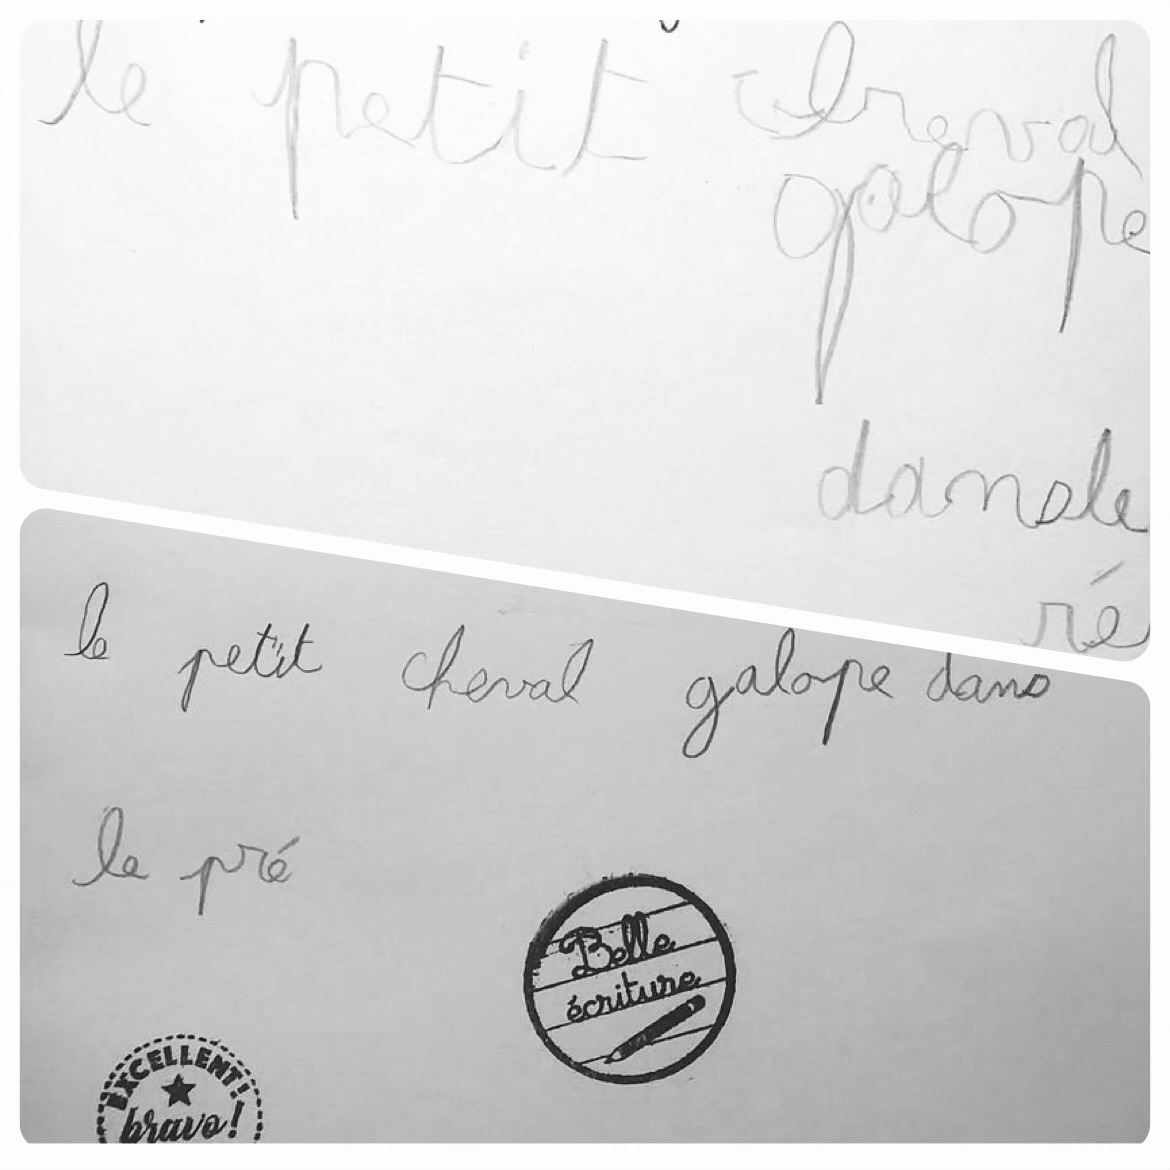 le petit cheval
galope
dans le
ré
le petit cheval galope dans
le pré
Belle
écriture
EXCELLENT!
bravo!